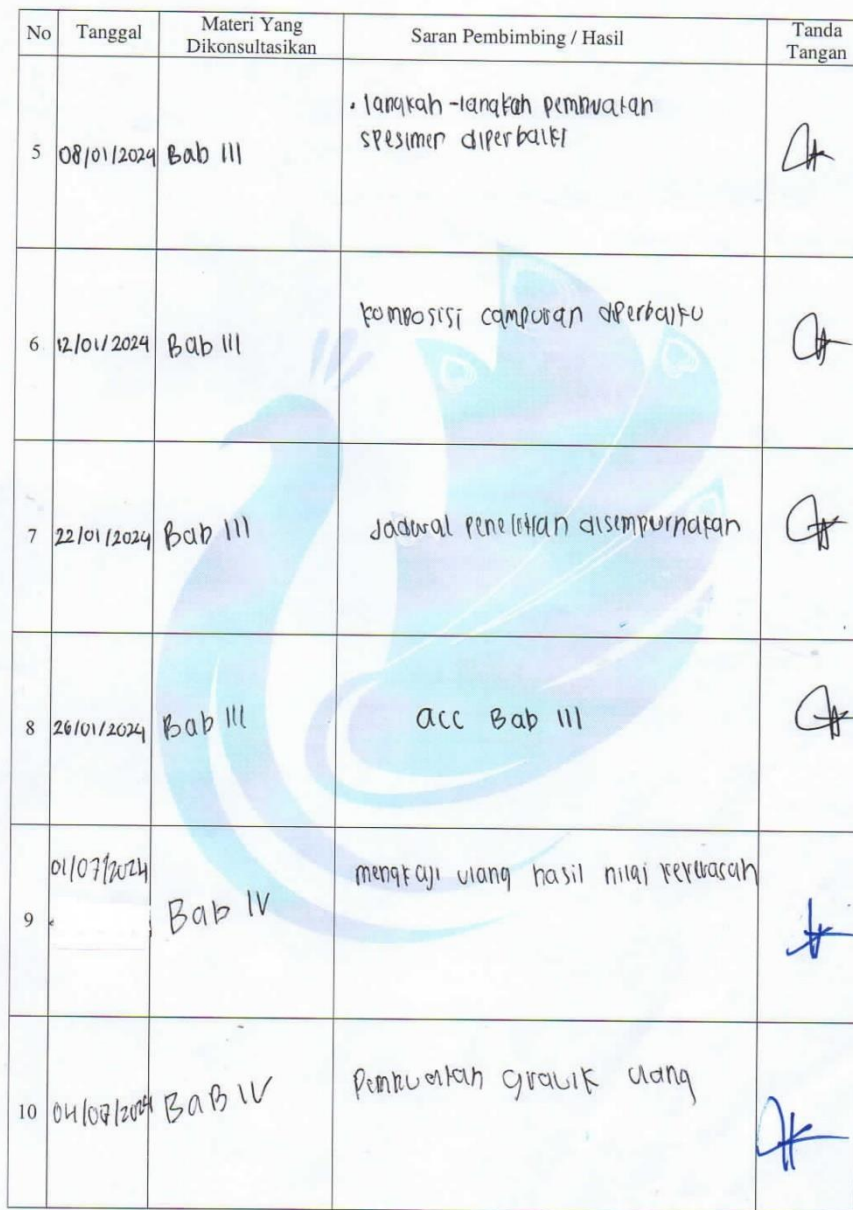 No Tanggal Materi Yang Dikonsultasikan Saran Pembimbing / Hasil Tanda Tangan
5 08/01/2024 Bab III • langkah-langkah pembuatan
spesimen diperbaiki
6 12/01/2024 Bab III komposisi campuran diperbaiki
7 22/01/2024 Bab III Jadwal penelitian disempurnakan
8 26/01/2024 Bab III acc Bab III
9 01/07/2024 Bab IV mengkaji ulang hasil nilai kekerasan
10 04/07/2024 BaB IV Pembuatan grafik ulang